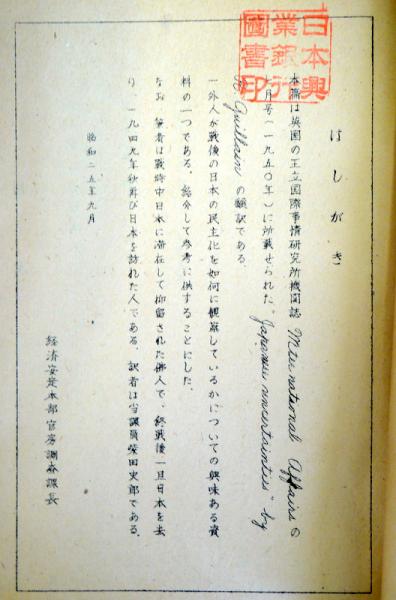 日本興
業銀行
圖書印
はしがき
本篇は英国の王立国際事情研究所機関誌 International Affairs の
月号(一九五〇年)に所載せられた。"Japanese uncertainties" by
Guillain の翻訳である。
一外人が戦後の日本の民主化を如何に観察しているかについての興味ある資
料の一つである。紹介して参考に供することにした。
なお 筆者は戦時中日本に滞在して抑留された佛人で、終戦後一旦日本を去
り、一九四九年秋再び日本を訪れた人である。訳者は当課員柴田史郎である。
昭和二五年九月
経済安定本部官房調査課長